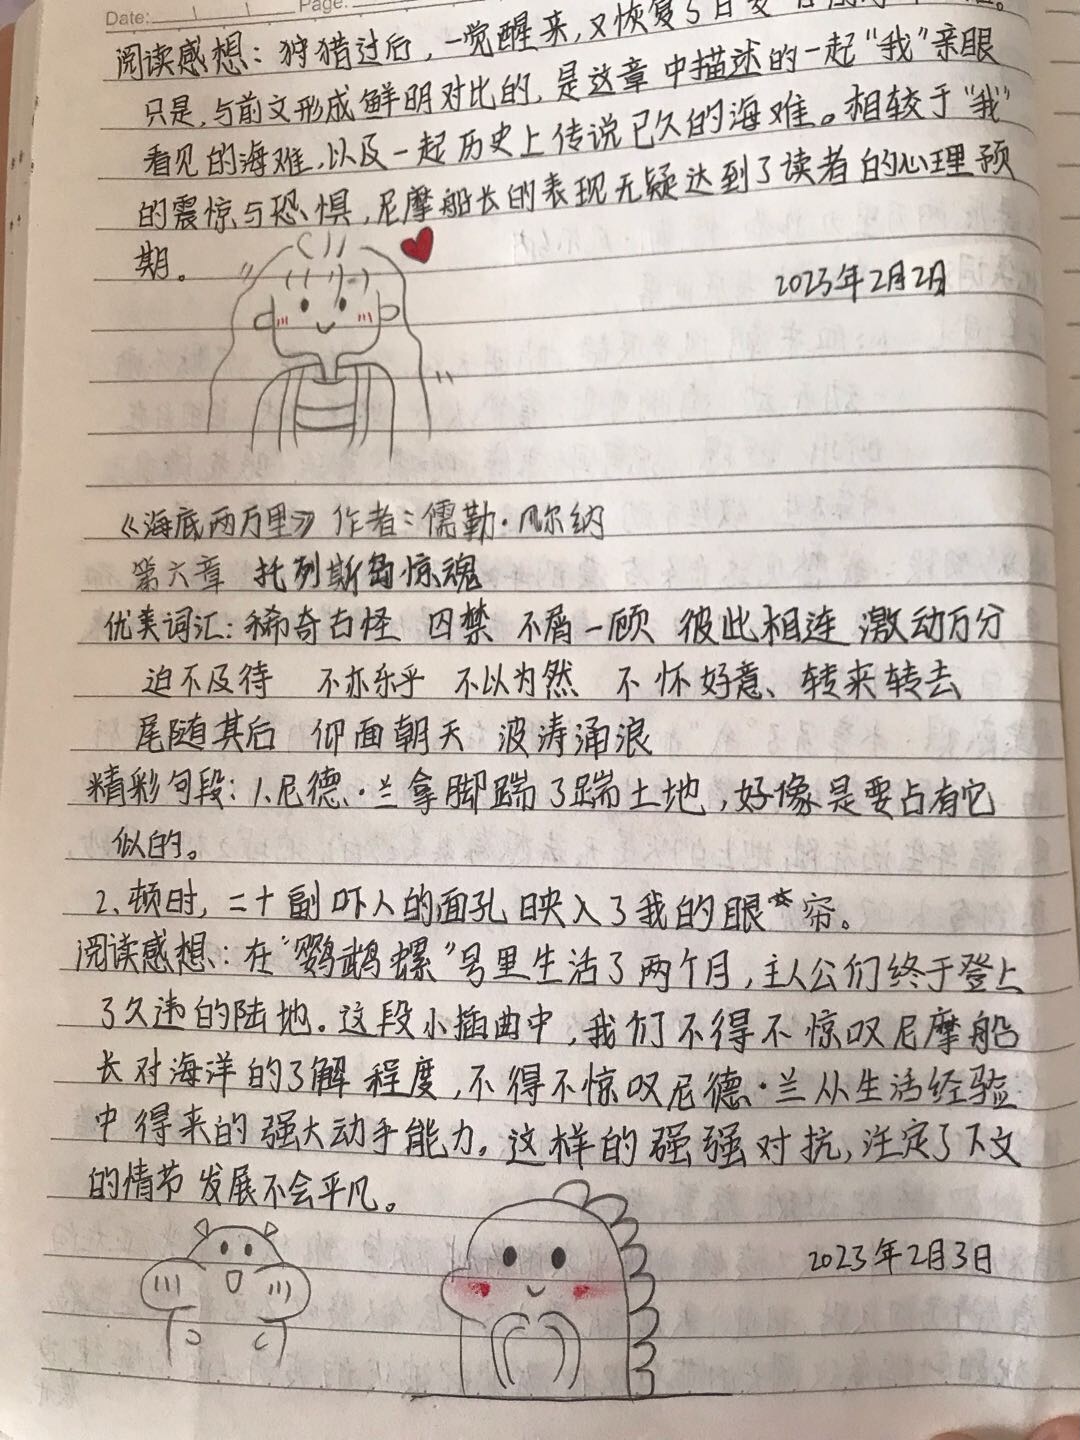 Date: Page:
阅读感想：狩猎过后，一觉醒来，又恢复了日
只是，与前文形成鲜明对比的，是这章中描述的一起“我”亲眼
看见的海难，以及一起历史上传说已久的海难。相较于“我”
的震惊与恐惧，尼摩船长的表现无疑达到了读者的心理预
期。
2023年2月2日
《海底两万里》作者：儒勒·凡尔纳
第六章 托列斯岛惊魂
优美词汇：稀奇古怪 囚禁 不屑一顾 彼此相连 激动万分
迫不及待 不亦乐乎 不以为然 不怀好意、转来转去
尾随其后 仰面朝天 波涛涌浪
精彩句段：1.尼德·兰拿脚踹了踹土地，好像是要占有它
似的。
2、顿时，二十副吓人的面孔映入了我的眼帘。
阅读感想：在“鹦鹉螺”号里生活了两个月，主人公们终于登上
了久违的陆地。这段小插曲中，我们不得不惊叹尼摩船
长对海洋的了解程度，不得不惊叹尼德·兰从生活经验
中得来的强大动手能力。这样的强强对抗，注定了下文
的情节发展不会平凡。
2023年2月3日